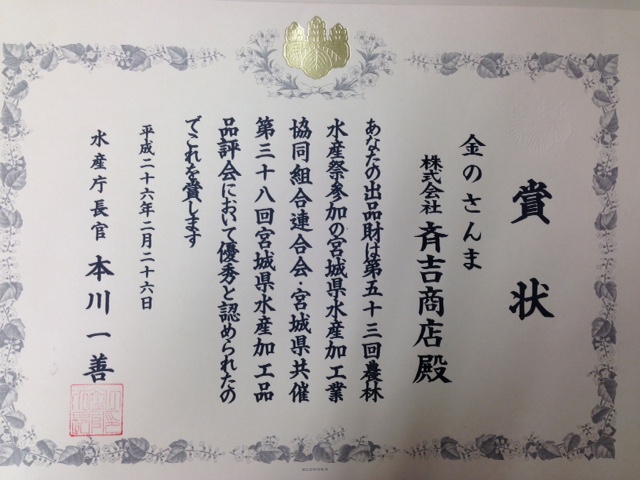 賞状
金のさんま
株式会社 斉吉商店殿
あなたの出品財は第五十三回農林
水産祭参加の宮城県水産加工業
協同組合連合会・宮城県共催
第三十八回宮城県水産加工品
品評会において優秀と認められたの
でこれを賞します
平成二十六年二月二十六日
水産庁長官 本川一善